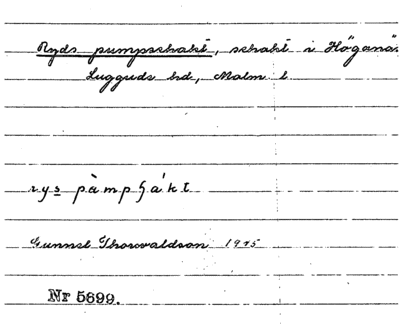 Ryds pumpschakt, schakt i Höganäs
Luggude hd, Malm l
rys pàmpʃákt
Gunnel Thorvaldson 1945
Nr 5699.